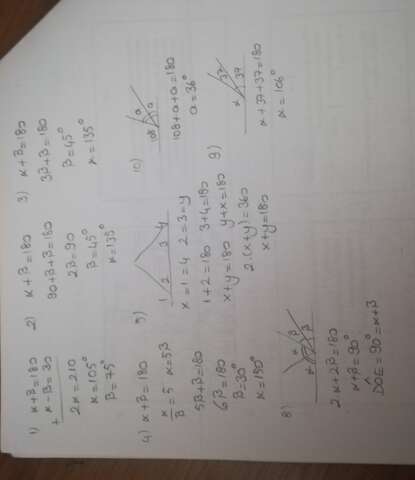 1) α+β=180
+ α-β=30
2α=210
α=105°
β=75°
2) α+β=180
90+β+β=180
2β=90
β=45°
α=135°
3) α+β=180
3β+β=180
β=45°
α=135°
4) α+β=180
α/β=5 α=5β
5β+β=180
6β=180
β=30°
α=150°
5)
1 2 3 4
x=1=4 2=3=y
1+2=180 3+4=180
x+y=180 y+x=180
2·(x+y)=360
x+y=180
10)
108 a a
108+a+a=180
a=36°
9)
α 37 37
α+37+37=180
α=106°
8)
α α β β
2α+2β=180
α+β=90°
DOE=90°=α+β